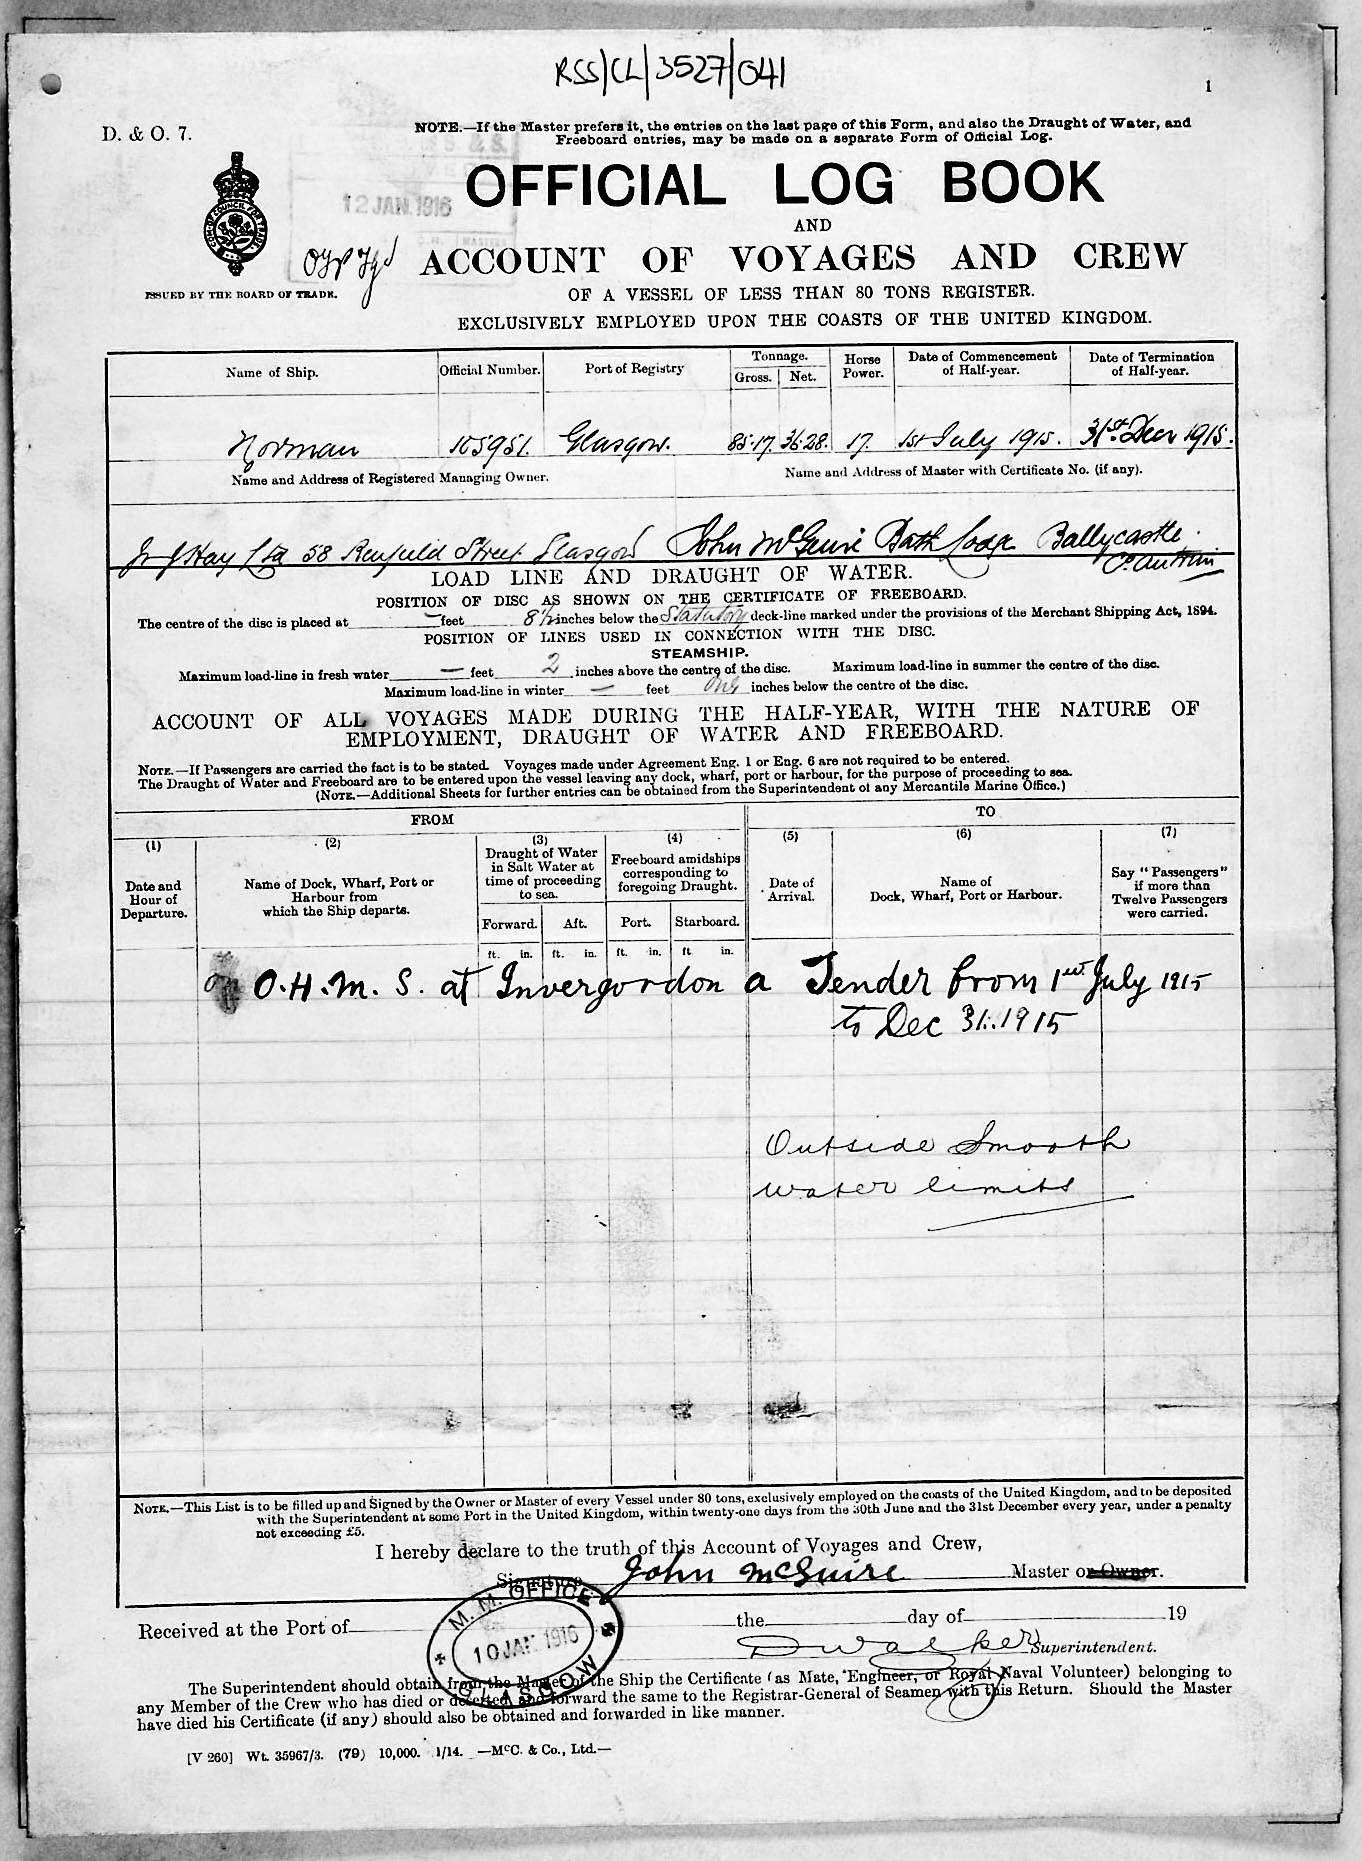 RSS/CL/3527/041
1
D. & O. 7.
NOTE.—If the Master prefers it, the entries on the last page of this Form, and also the Draught of Water, and
Freeboard entries, may be made on a separate Form of Official Log.
12 JAN. 1916
OFFICIAL LOG BOOK
AND
ACCOUNT OF VOYAGES AND CREW
ISSUED BY THE BOARD OF TRADE.
OF A VESSEL OF LESS THAN 80 TONS REGISTER.
EXCLUSIVELY EMPLOYED UPON THE COASTS OF THE UNITED KINGDOM.
Name of Ship. Official Number. Port of Registry Tonnage. Gross. Net. Horse Power. Date of Commencement of Half-year. Date of Termination of Half-year.
Norman 105951. Glasgow. 85.17. 36.28. 17. 1st July 1915. 31st Decr 1915.
Name and Address of Registered Managing Owner. Name and Address of Master with Certificate No. (if any).
J Hay Ltd 58 Renfield Street Glasgow John McGuire Bath Lodge Ballycastle.
Co. Antrim
LOAD LINE AND DRAUGHT OF WATER.
POSITION OF DISC AS SHOWN ON THE CERTIFICATE OF FREEBOARD.
The centre of the disc is placed at — feet 8½ inches below the Statutory deck-line marked under the provisions of the Merchant Shipping Act, 1894.
POSITION OF LINES USED IN CONNECTION WITH THE DISC.
STEAMSHIP.
Maximum load-line in fresh water — feet 2 inches above the centre of the disc. Maximum load-line in summer the centre of the disc.
Maximum load-line in winter — feet only inches below the centre of the disc.
ACCOUNT OF ALL VOYAGES MADE DURING THE HALF-YEAR, WITH THE NATURE OF
EMPLOYMENT, DRAUGHT OF WATER AND FREEBOARD.
NOTE.—If Passengers are carried the fact is to be stated. Voyages made under Agreement Eng. 1 or Eng. 6 are not required to be entered.
The Draught of Water and Freeboard are to be entered upon the vessel leaving any dock, wharf, port or harbour, for the purpose of proceeding to sea.
(NOTE.—Additional Sheets for further entries can be obtained from the Superintendent of any Mercantile Marine Office.)
FROM TO
(1) (2) (3) (4) (5) (6) (7)
Date and Hour of Departure. Name of Dock, Wharf, Port or Harbour from which the Ship departs. Draught of Water in Salt Water at time of proceeding to sea. Freeboard amidships corresponding to foregoing Draught. Date of Arrival. Name of Dock, Wharf, Port or Harbour. Say "Passengers" if more than Twelve Passengers were carried.
Forward. Aft. Port. Starboard.
ft. in. ft. in. ft. in. ft. in.
on O.H.M.S. at Invergordon a Tender from 1st July 1915
to Dec 31.1915
Outside Smooth
water limits
NOTE.—This List is to be filled up and Signed by the Owner or Master of every Vessel under 80 tons, exclusively employed on the coasts of the United Kingdom, and to be deposited
with the Superintendent at some Port in the United Kingdom, within twenty-one days from the 30th June and the 31st December every year, under a penalty
not exceeding £5.
I hereby declare to the truth of this Account of Voyages and Crew,
Signature John McGuire Master or Owner.
M. M. OFFICE
10 JAN 1916
GLASGOW
Received at the Port of the day of 19
D Walker Superintendent.
The Superintendent should obtain from the Master of the Ship the Certificate (as Mate, Engineer, or Royal Naval Volunteer) belonging to
any Member of the Crew who has died or deserted and forward the same to the Registrar-General of Seamen with this Return. Should the Master
have died his Certificate (if any) should also be obtained and forwarded in like manner.
[V 260] Wt. 35967/3. (79) 10,000. 1/14. —McC. & Co., Ltd.—